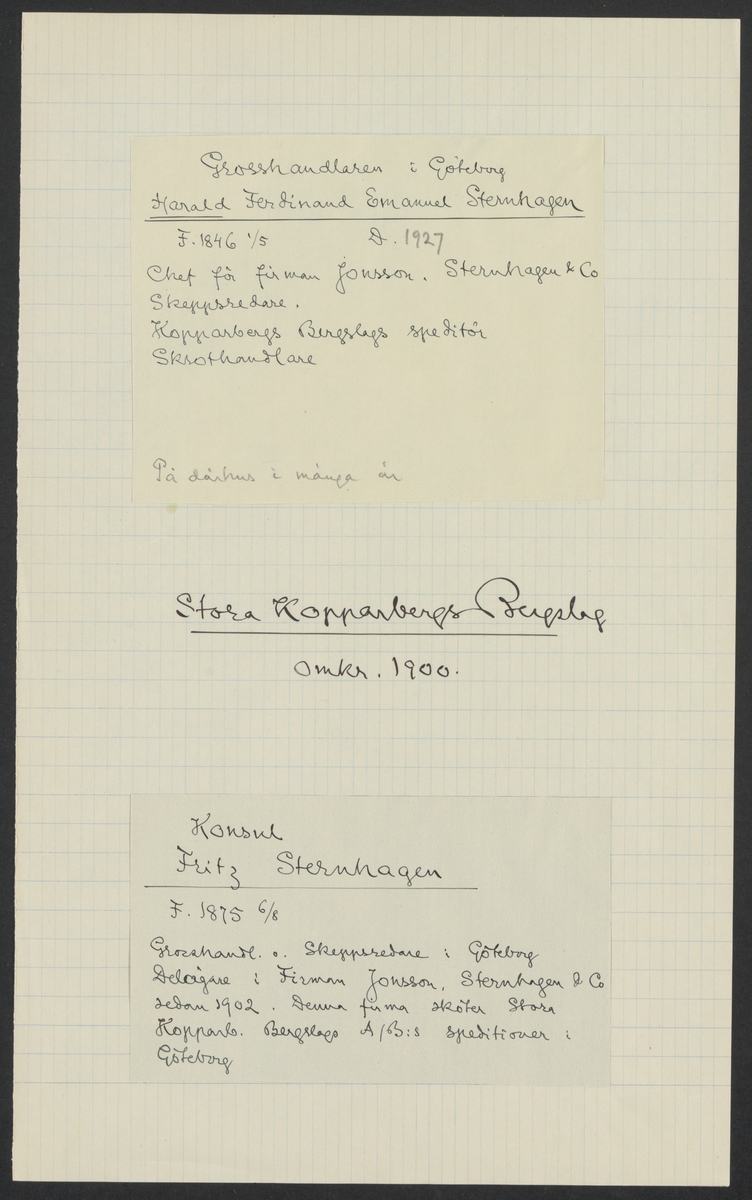 Grosshandlaren i Göteborg
Harald Ferdinand Emanuel Sternhagen
F. 1846 1/5 D. 1927
Chef för firman Jonsson, Sternhagen & Co
Skeppsredare.
Kopparbergs Bergslags speditör
Skrothandlare
På dårhus i många år
Stora Kopparbergs Bergslag
omkr. 1900.
Konsul
Fritz Sternhagen
F. 1875 6/8
Grosshandl. o. Skeppsredare i Göteborg
Delägare i Firman Jonsson, Sternhagen & Co
sedan 1902. Denna firma sköter Stora
Kopparb. Bergslags A/B:s speditioner i
Göteborg